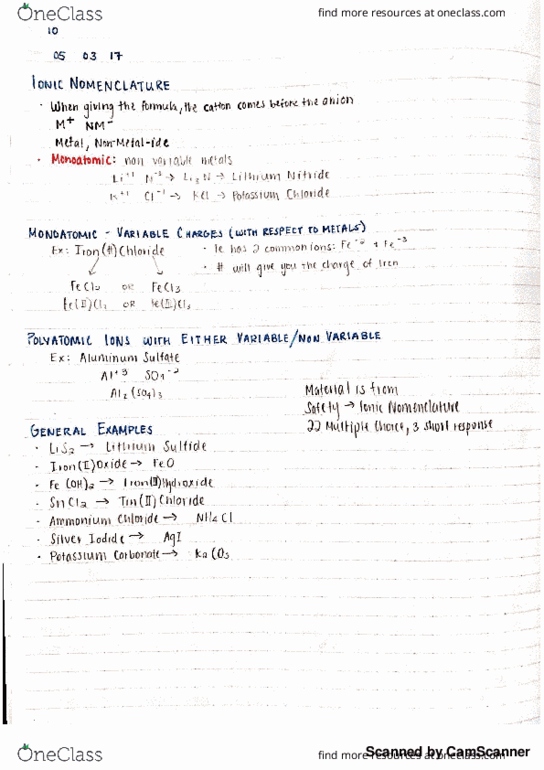 OneClass
find more resources at oneclass.com
10
05 03 17
IONIC NOMENCLATURE
· When giving the formula, the cation comes before the anion
M+ NM-
Metal, Non-Metal-ide
· Monoatomic: non variable metals
Li+1 N-3 → Li3N → Lithium Nitride
K+1 Cl-1 → KCl → Potassium Chloride
MONOATOMIC - VARIABLE CHARGES (WITH RESPECT TO METALS)
Ex: Iron(#)Chloride
· Ie has 2 common ions: Fe + Fe-3
· # will give you the charge of Iron
FeCl2 OR FeCl3
Fe(II)Cl2 OR Fe(III)Cl3
POLYATOMIC IONS WITH EITHER VARIABLE/NON VARIABLE
Ex: Aluminum Sulfate
Al+3 SO4-2
Al2(SO4)3
Material is from
Safety → Ionic Nomenclature
22 Multiple Choice, 3 short response
GENERAL EXAMPLES
· LiS2 → Lithium Sulfide
· Iron(I)Oxide → FeO
· Fe(OH)2 → Iron(II)Hydroxide
· SnCl2 → Tin(II)Chloride
· Ammonium Chloride → NH4Cl
· Silver Iodide → AgI
· Potassium Carbonate → K2CO3
OneClass
find more resources at oneclass.com
Scanned by CamScanner